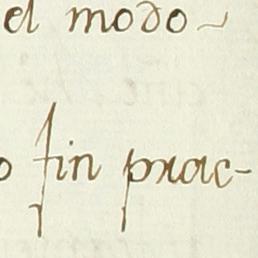 el modo
o fin prac-